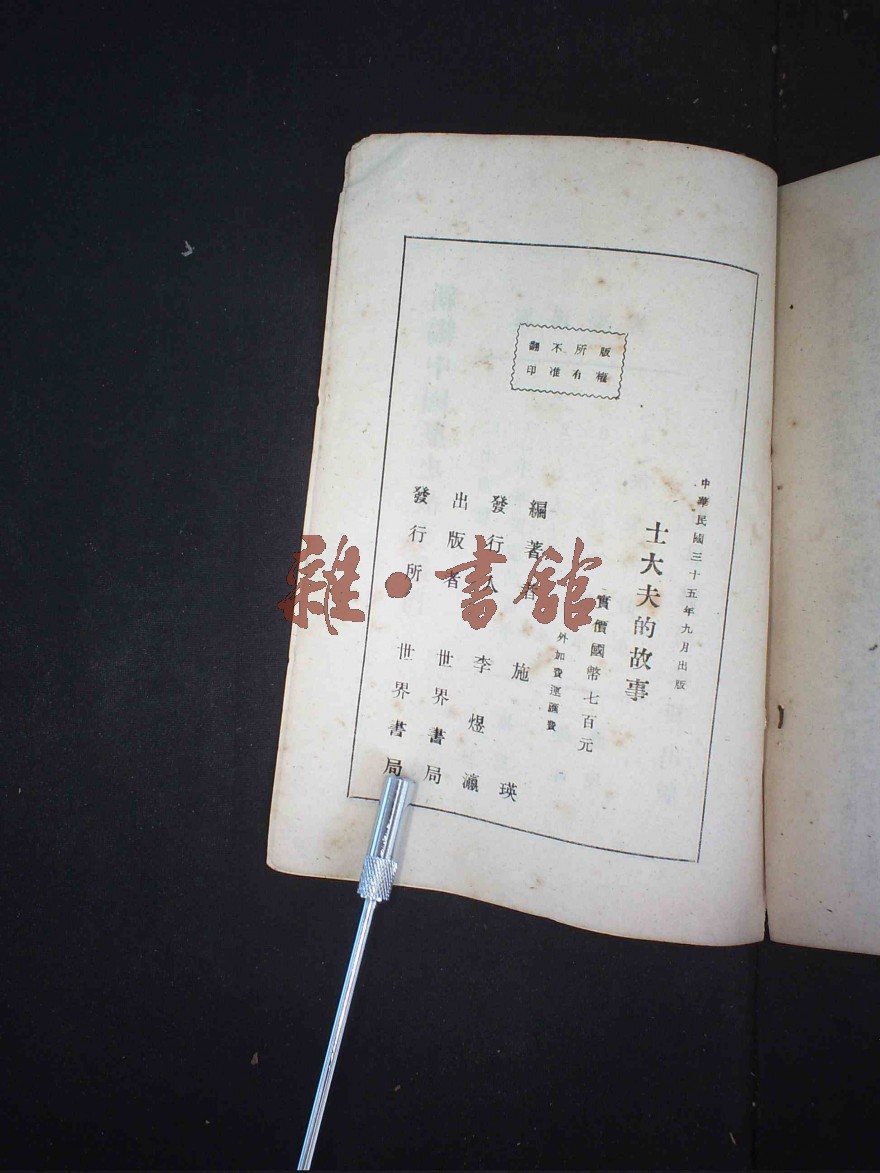 版權所有不准翻印
中華民國三十五年九月出版
士大夫的故事
實價國幣七百元
外加費運匯費
編著者 施瑛
發行人 李煜瀛
出版者 世界書局
發行所 世界書局
雜·書館